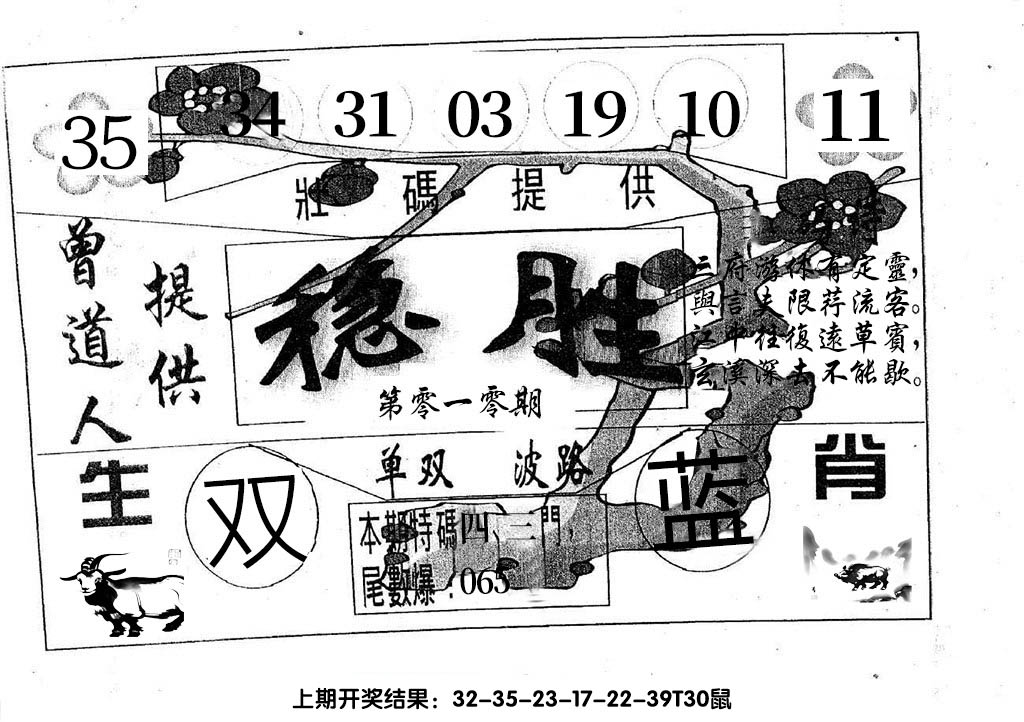 35 34 31 03 19 10 11
壯碼提供
特
曾道人
提供
稳胜
第零一零期
三府游休有定靈,
與言夫限荐流客。
江中往復遠草賓,
玄溪深去不能歇。
单双 波路
生
双
蓝
肖
本期特碼四、三門,
尾數爆:065
上期开奖结果:32-35-23-17-22-39T30鼠